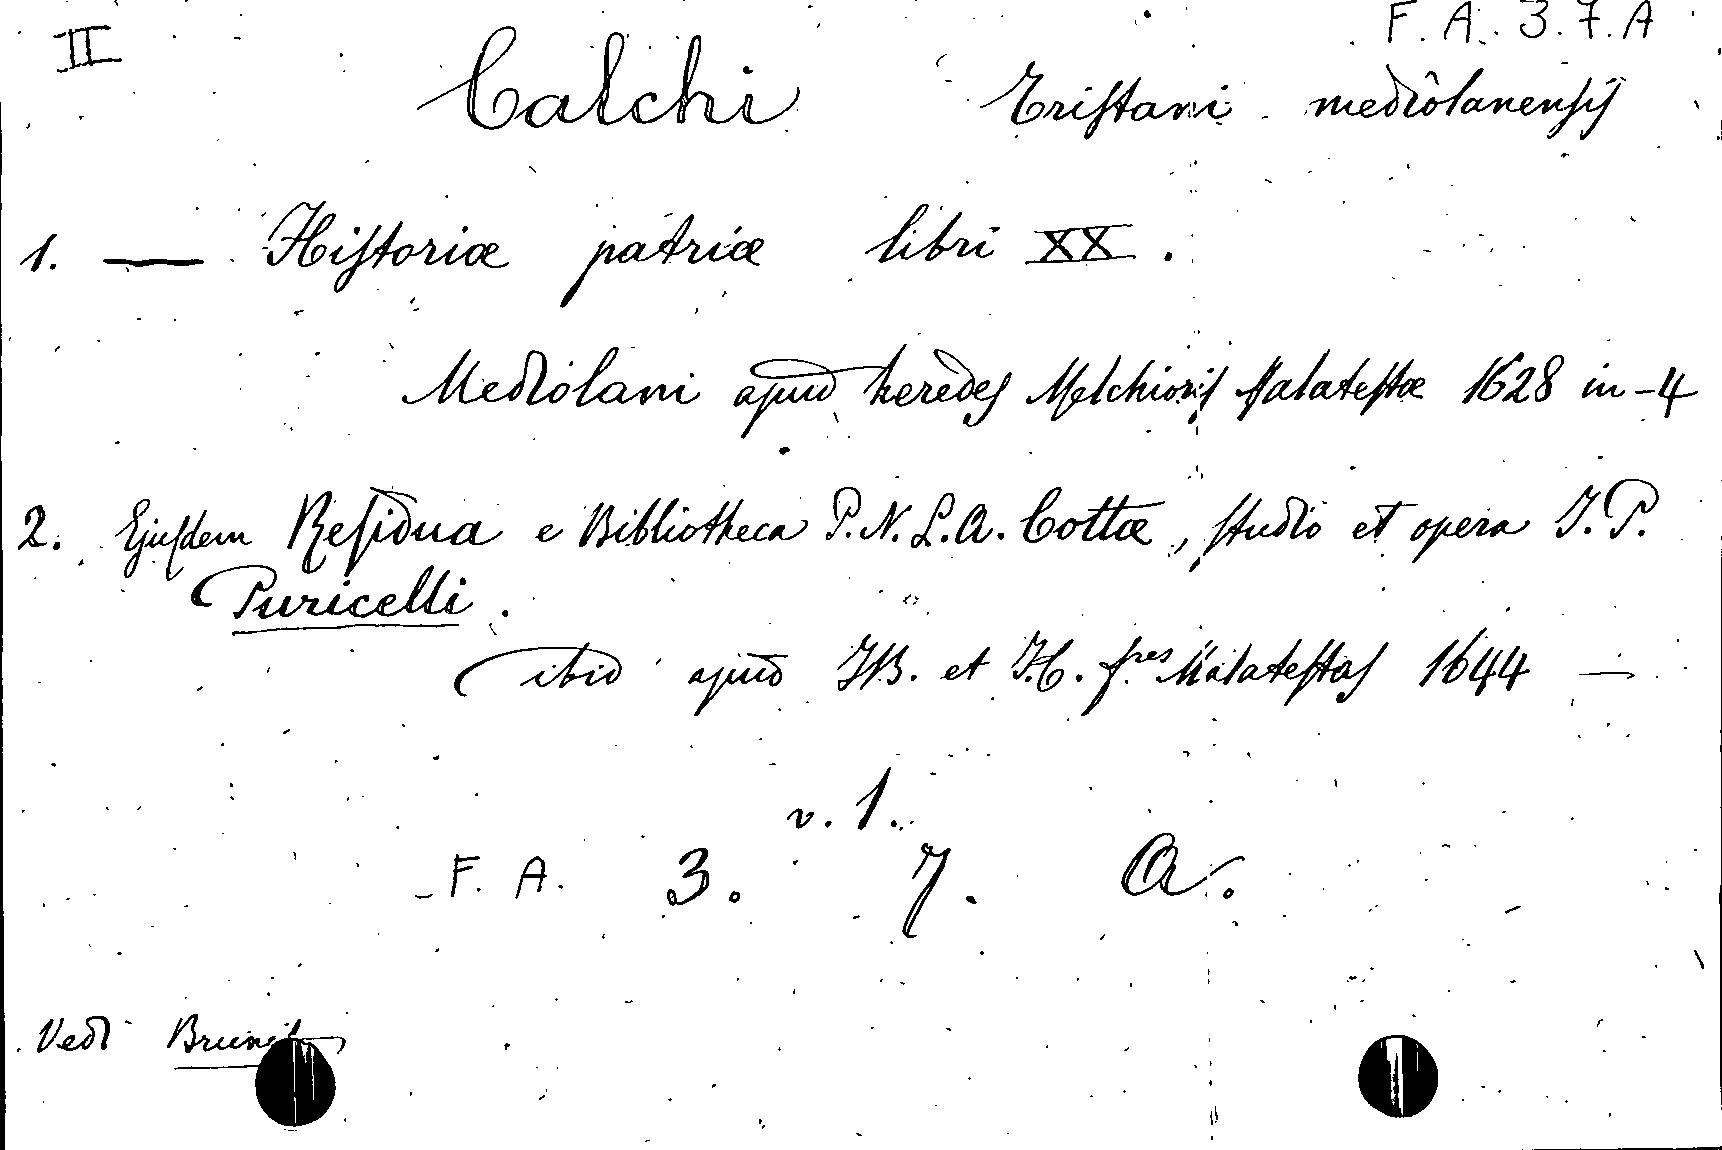 II
F. A. 3. 7. A
Calchi Tristani mediolanensis
1. — Historiæ patriæ libri XX.
Mediolani apud heredes Melchioris Malatestæ 1628 in-4
2. Ejusdem Residua e Bibliotheca P. N. L. A. Cottæ, studio et opera J. P.
Puricelli.
ibid apud JB. et J.C. fres Malatestas 1644 —
v. 1.
F. A. 3. 7. A.
Vedi Brunet